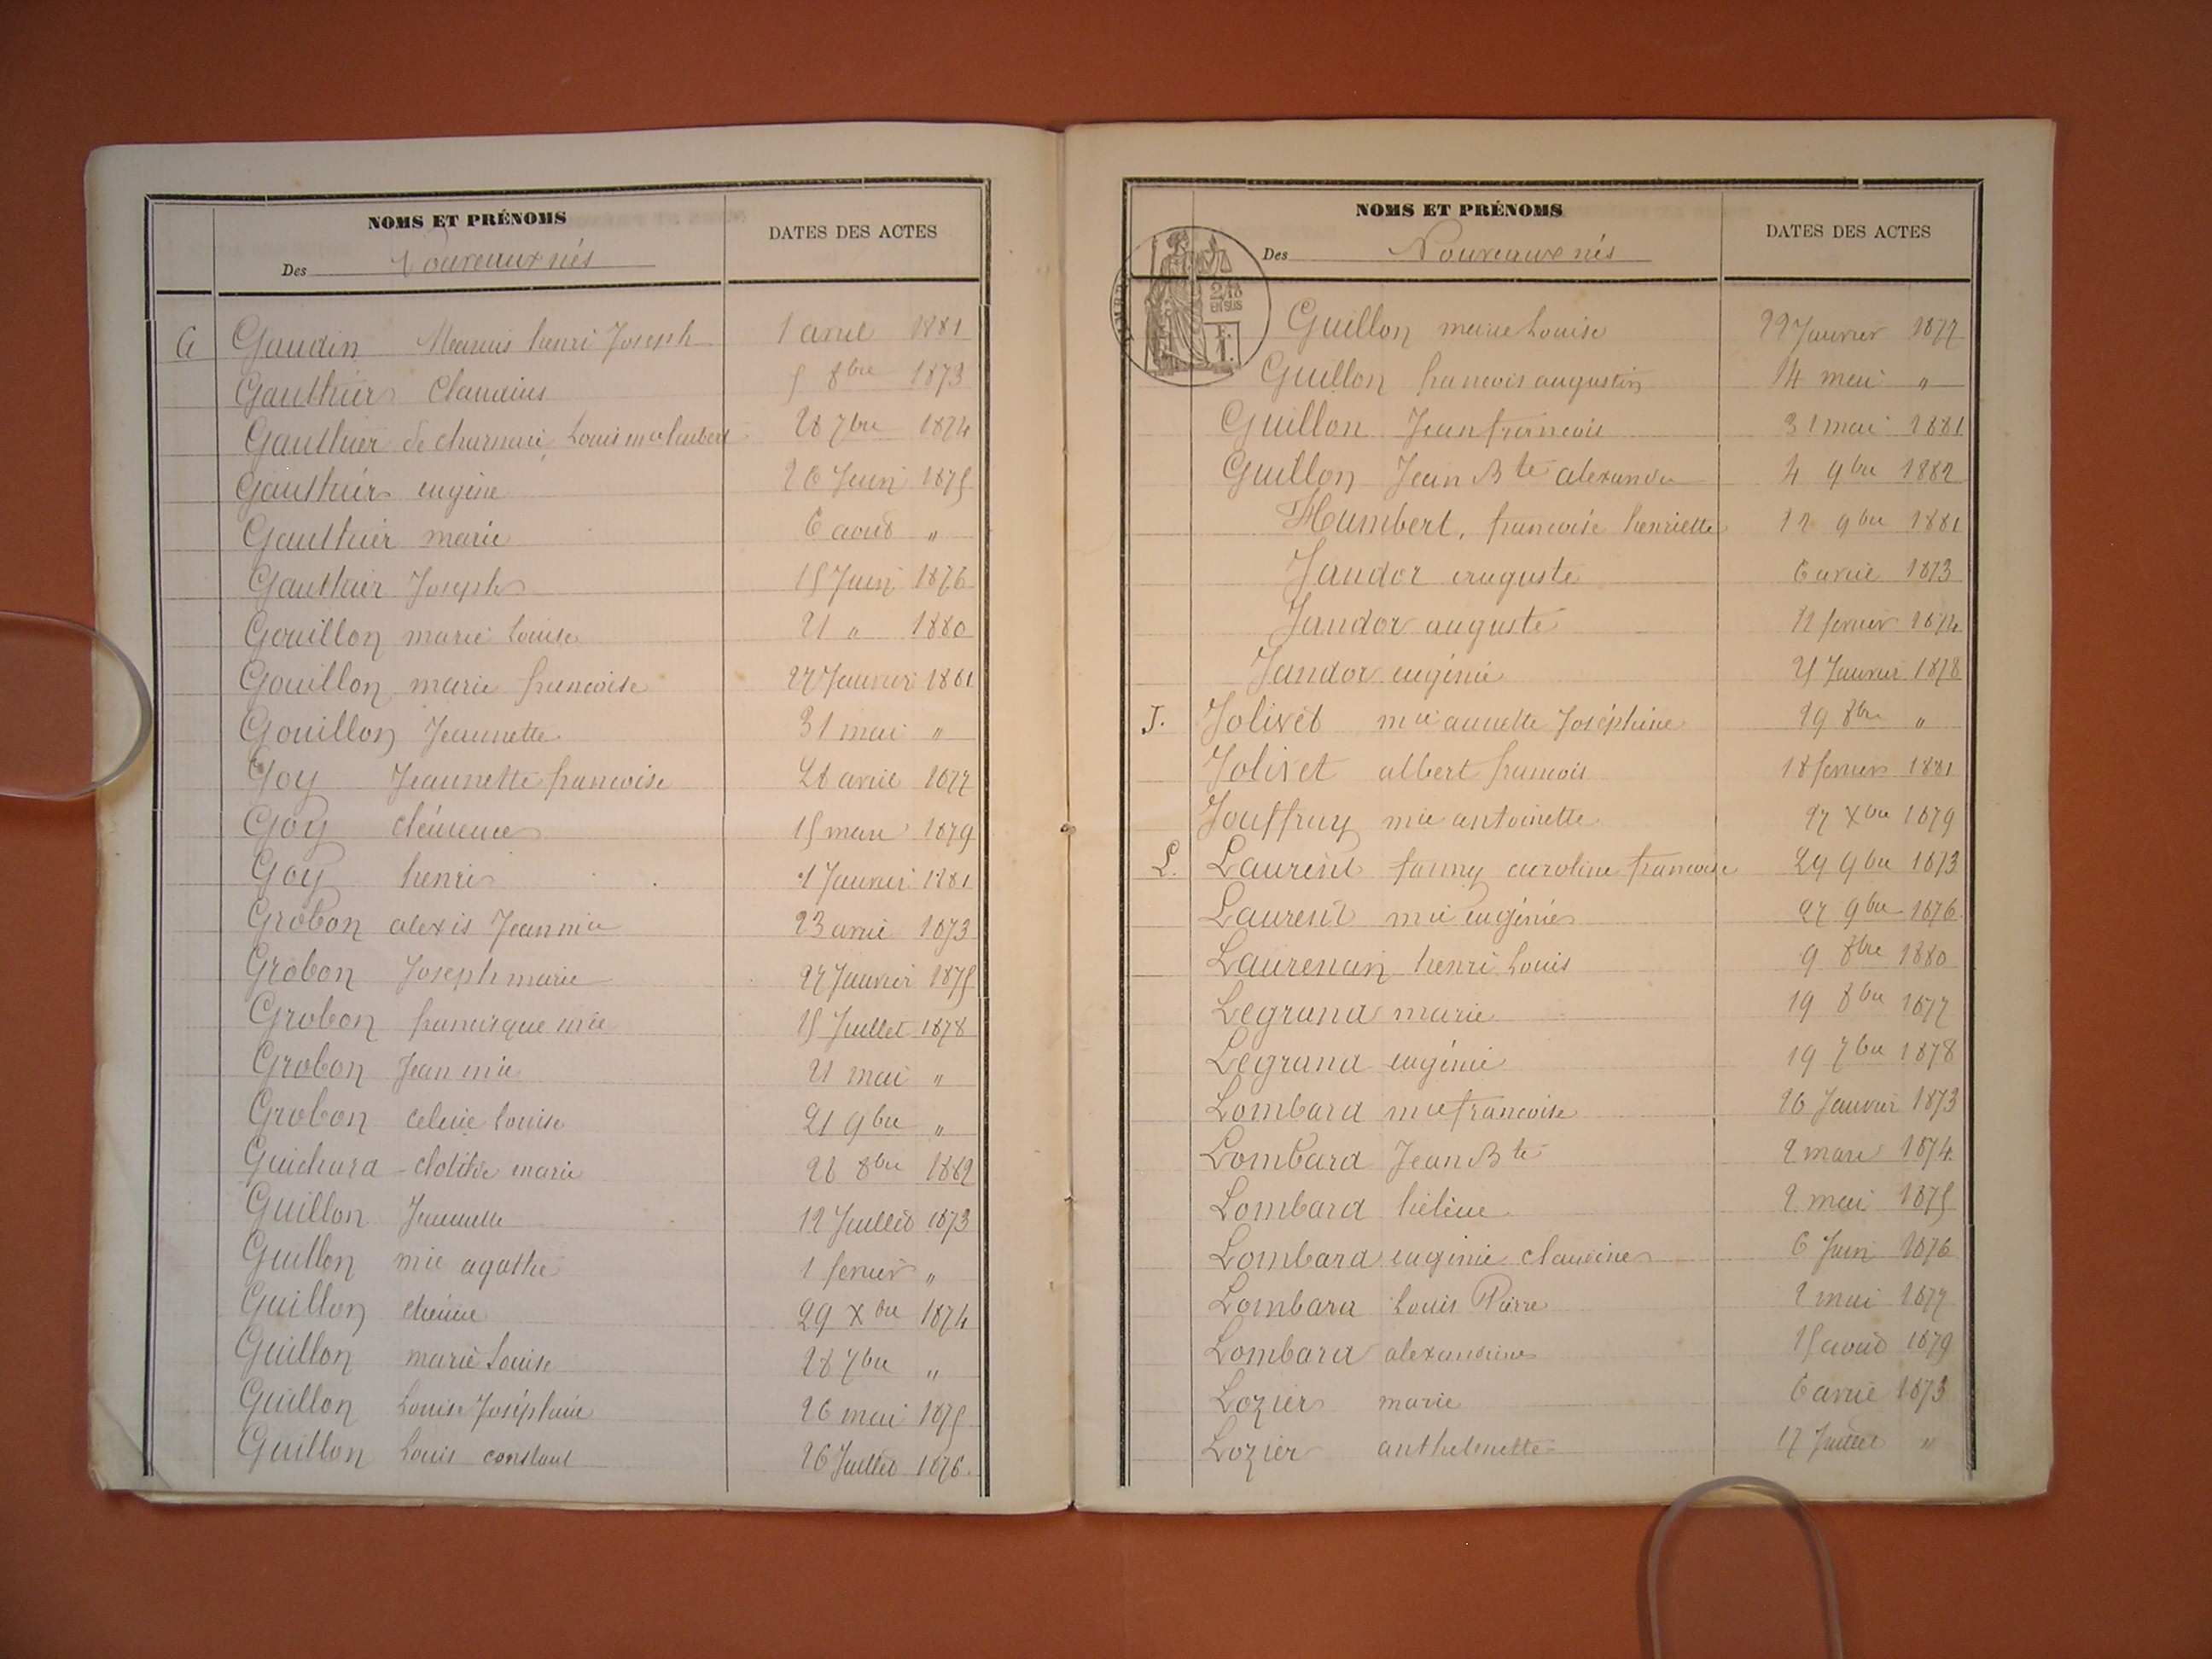 NOMS ET PRÉNOMS
Des Nouveaux nés
DATES DES ACTES
G Gaudin Marius henri Joseph 1 avril 1881
Gauthier Claudius 5 8bre 1873
Gauthier de charnacé, Louis mie 28 7bre 1874
Gauthier eugène 26 Juin 1875
Gauthier marie 6 août "
Gauthier Joseph 15 Juin 1876
Gouillon marie Louise 21 " 1880
Gouillon marie francoise 27 Janvier 1881
Gouillon Jeannette 31 mai "
Goy Jeannette francoise 28 avril 1877
Goy clémence 15 mars 1879
Goy henri 1 Janvier 1881
Grobon alexis Jean mie 23 avril 1873
Grobon Joseph marie 27 Janvier 1875
Grobon francisque mie 15 Juillet 1878
Grobon Jean mie 21 mai "
Grobon celine Louise 21 9bre "
Guichard clotilde marie 26 8bre 1882
Guillon Jeannette 12 Juillet 1873
Guillon mie agathe 1 fevrier "
Guillon 29 Xbre 1874
Guillon marie Louise 28 7bre "
Guillon Louise Joséphine 26 mai 1875
Guillon Louis constant 26 Juillet 1876
NOMS ET PRÉNOMS
Des Nouveaux nés
DATES DES ACTES
2/10
EN SUS
Guillon marie Louise 22 Janvier 1877
Guillon francois augustin 14 mai "
Guillon Jean francois 31 mai 1881
Guillon Jean Bte alexandre 4 9bre 1882
Humbert, francoise henriette 12 9bre 1881
Jandor auguste 6 avril 1873
Jandor auguste 11 fevrier 1874
Jandor eugénie 21 Janvier 1878
J. Jolivet mie annette Joséphine 29 8bre "
Jolivet albert francois 18 fevrier 1881
Jouffray mie antoinette 27 Xbre 1879
L. Laurent fanny caroline francoise 29 9bre 1873
Laurent mie eugénie 27 9bre 1876
Laurencin henri Louis 9 8bre 1880
Legrand marie 19 8bre 1877
Legrand eugénie 19 7bre 1878
Lombard mie francoise 26 Janvier 1873
Lombard Jean Bte 2 mars 1874
Lombard hélène 2 mai 1875
Lombard eugénie claudine 6 Juin 1876
Lombard Louis Pierre 2 mai 1877
Lombard alexandrine 15 août 1879
Lozier marie 6 avril 1873
Lozier anthelmette 17 Juillet "